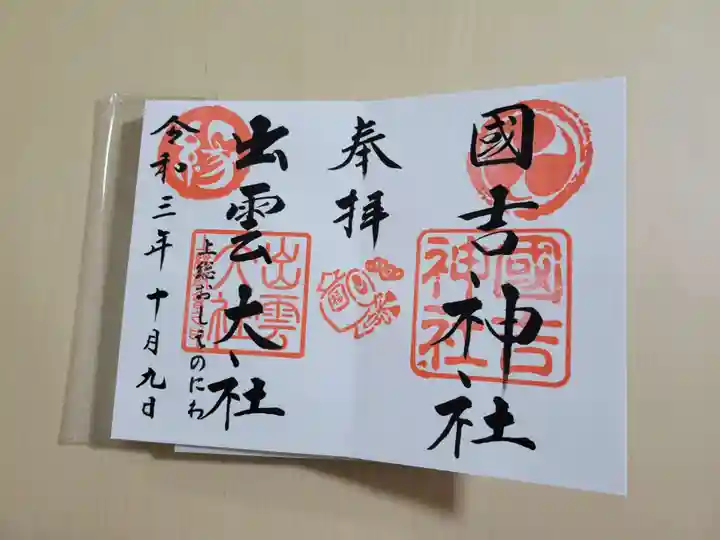 國吉神社
國吉
神社
奉拝
出雲大社
出雲
大社
縁
上総おもひのにわ
令和三年十月九日